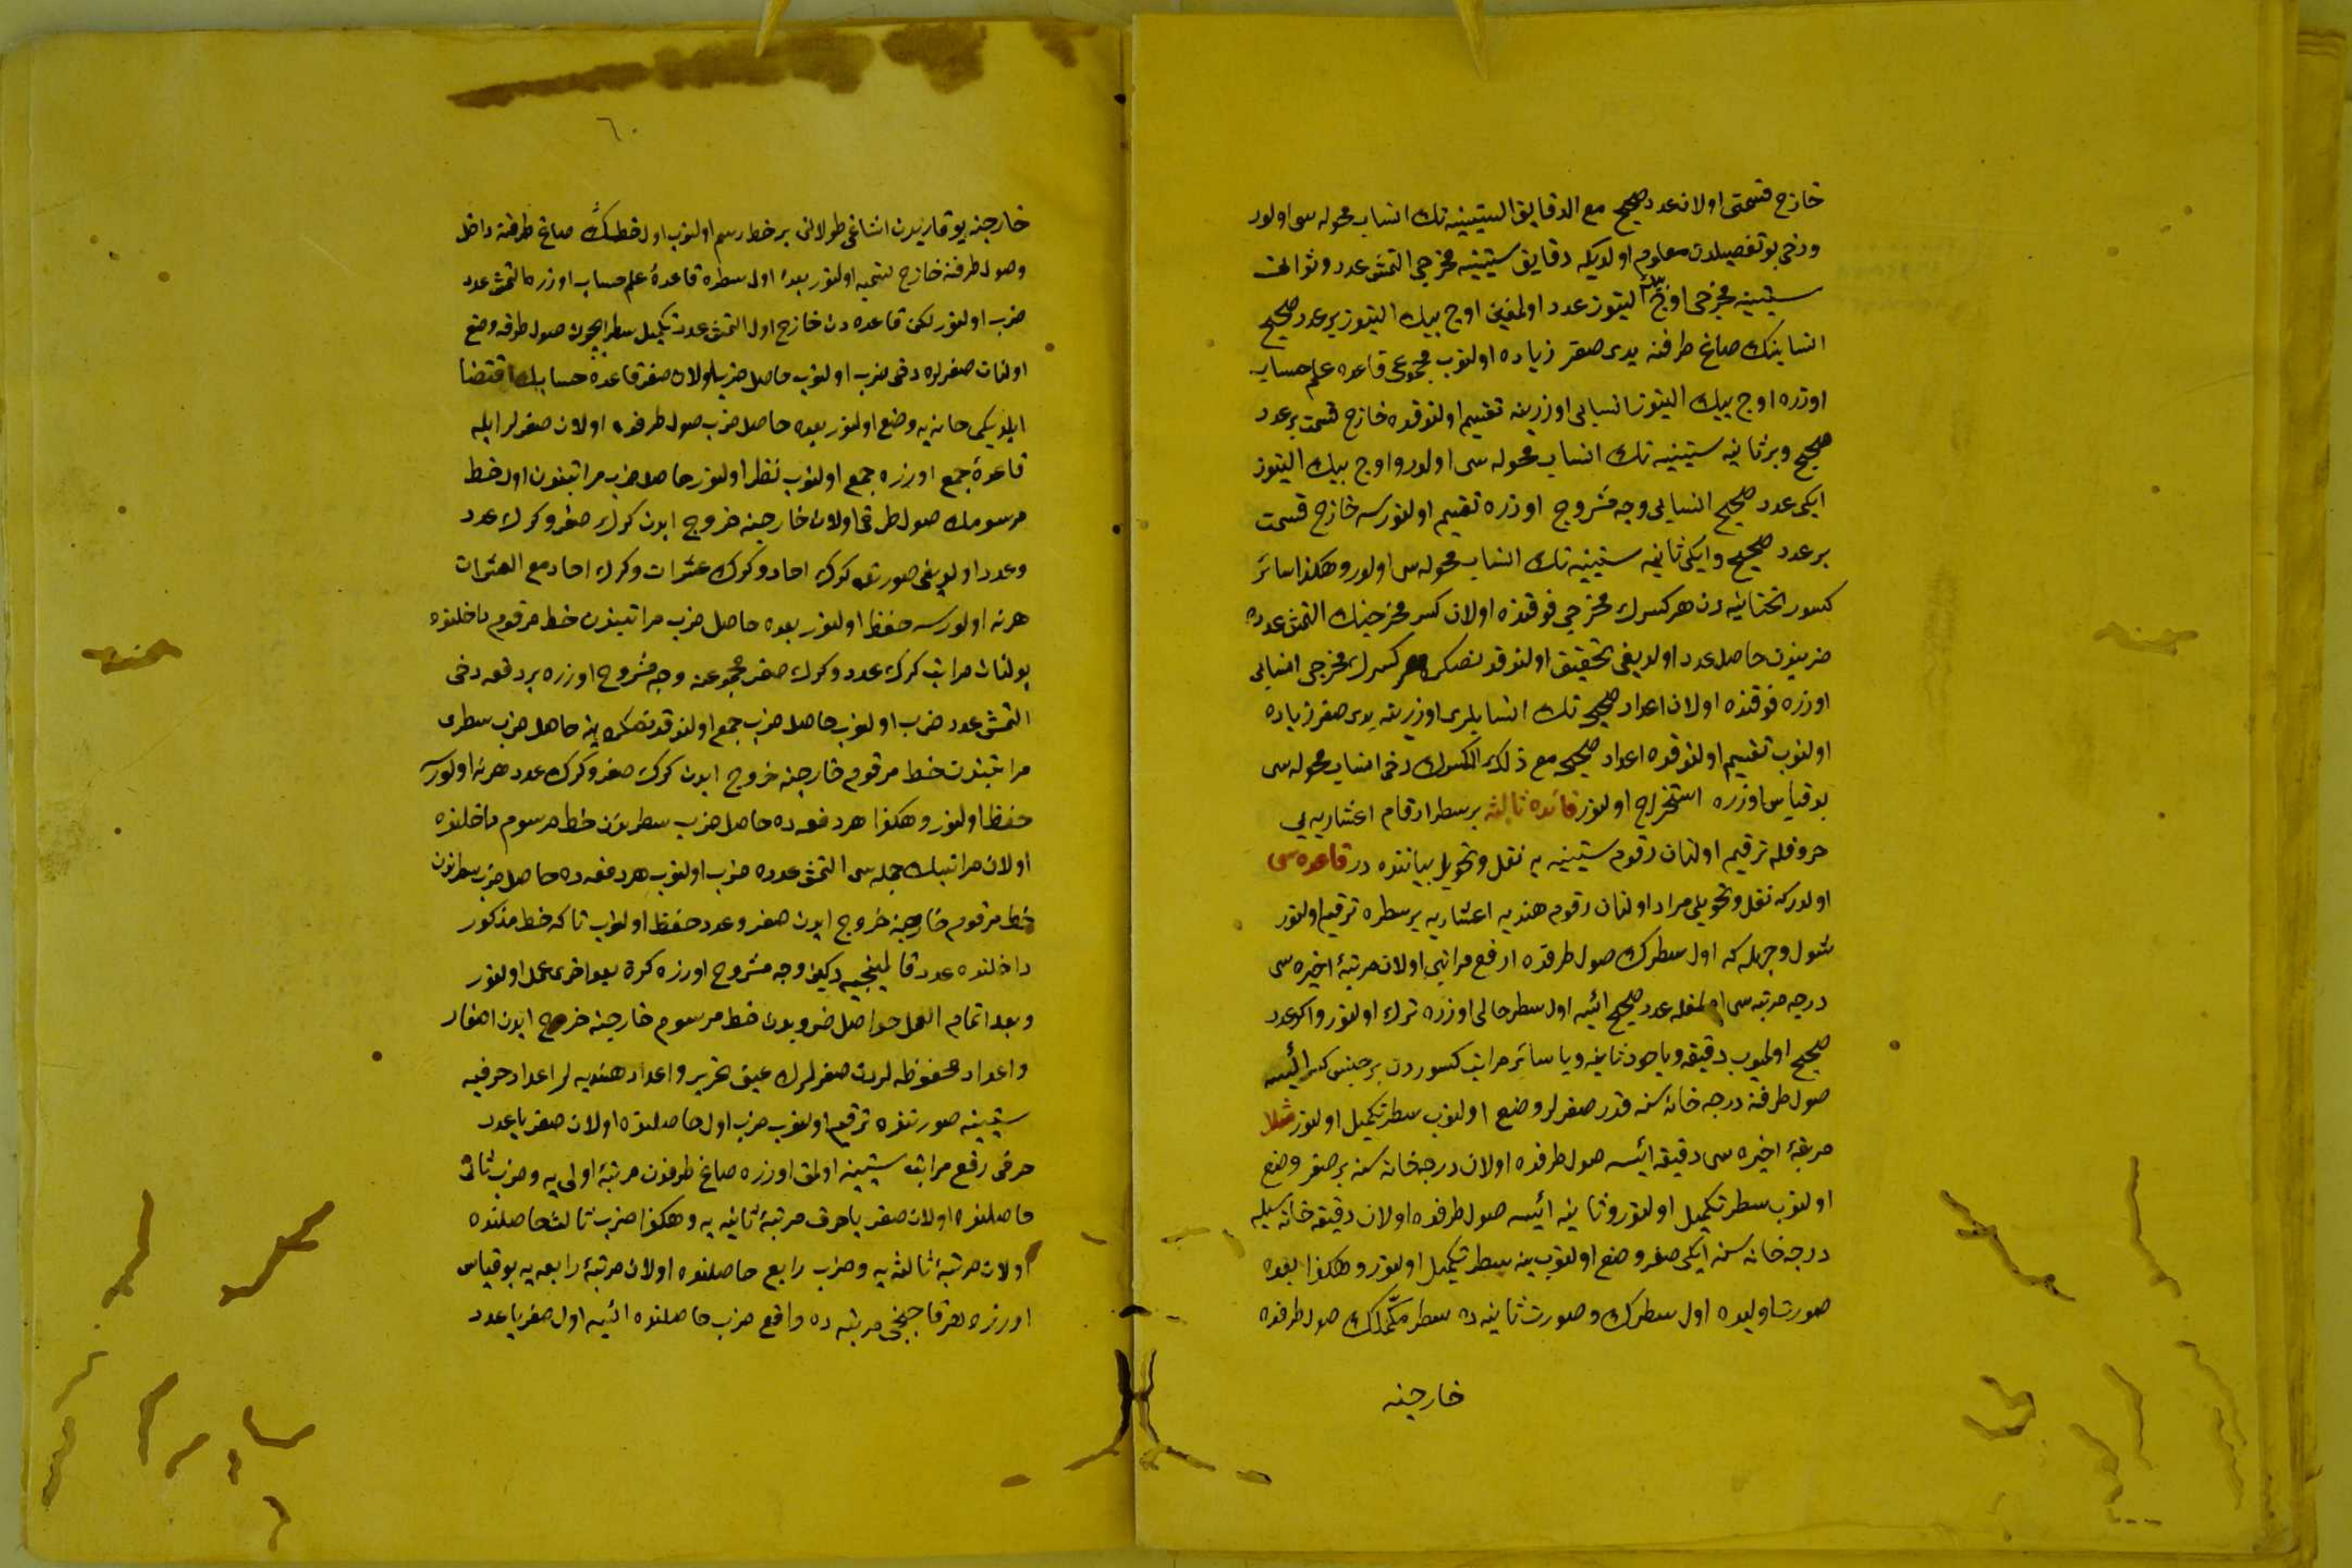 خارج قسمتی اولان عدد صحیح مع الدقایق الستینیه نك انساب محوله سی اولور
ودخی بو تفصیلدن معلوم اولدیکه دقایق ستینیه مخرجی التمش عدد وثوانئ
ستینیه مخرجی اوچ بیك التیوز عدد اولمغین اوچ بیك التیوز بر عدد صحیح
انسابنك صاغ طرفنه یدی صفر زیاده اولنوب مجموعی قاعدۀ علم حساب
اوزره اوچ بیك التیوز انسابی اوزرینه تقسیم اولندوقده خارج قسمت بر عدد
صحیح وبر ثانیه ستینیه نك انساب محوله سی اولور واوچ بیك التیوز
ایکی عدد صحیح انسابی وجه مشروح اوزره تقسیم اولنورسه خارج قسمت
بر عدد صحیح وایکی ثانیه ستینیه نك انساب محوله سی اولور وهکذا سائر
کسور تحتانیه دن هر کسرك مخرجی فوقنده اولان کسر مخرجنك التمش عدده
ضربندن حاصل عدد اولدیغی تحقیق اولندقدنصکره هر کسرك مخرجی انسابی
اوزره فوقنده اولان اعداد صحیحه نك انسابلری اوزرینه یدی صفر زیاده
اولنوب تقسیم اولندوقده اعداد صحیحه مع ذلك الکسرك دخی انساب محوله سی
بو قیاس اوزره استخراج اولنور فائده ثالثه بر سطر ارقام اعشاریه یی
حروفله ترقیم اولنان رقوم ستینیه یه نقل وتحویل بیاننده در قاعده سی
اولدرکه نقل وتحویلی مراد اولنان رقوم هندیه اعشاریه بر سطره ترقیم اولنور
شول وجهله که اول سطرك صول طرفنده ارفع مراتبی اولان مرتبۀ اخیره سی
درجه مرتبه سی اولمغله عدد صحیح ائیسه اول سطر حالی اوزره ترك اولنور واکر عدد
صحیح اولمیوب دقیقه ویاخود ثانیه ویا سائر مراتب کسوردن بر جنس کسر ائیسه
صول طرفنه درجه خانه سنه قدر صفرلر وضع اولنوب سطر تکمیل اولنور مثلا
مرتبۀ اخیره سی دقیقه ائیسه صول طرفنده اولان درجه خانه سنه بر صفر وضع
اولنوب سطر تکمیل اولنور وثانیه ائیسه صول طرفنده اولان دقیقه خانه سیله
درجه خانه سنه ایکی صفر وضع اولنوب ینه سطر تکمیل اولنور وهکذا بعده
صورت اولیده اول سطرك وصورت ثانیه ده سطر مکملك صول طرفنده
خارجنه
٦٠
خارجنه یوقاریدن اشاغی طولانی بر خط رسم اولنوب اول خطك صاغ طرفنه داخل
وصول طرفنه خارج تسمیه اولنور بعده اول سطره قاعدۀ علم حساب اوزره التمش عدد
ضرب اولنور لکن قاعده دن خارج اول التمش عددی تکمیل سطر ایچون صول طرفه وضع
اولنان صفرلره دخی ضرب اولنوب حاصل ضربلری اولان صفر قاعدۀ حسابك اقتضا
ایلدیکی خانه یه وضع اولنور بعده حاصل ضرب صول طرفنده اولان صفرلر ایله
قاعدۀ جمع اوزره جمع اولنوب نظر اولنور حاصل ضرب مراتبندن اول خط
مرسومك صول طرفی اولان خارجنه خروج ایدن کرك صفر وکرك عدد
وعدد اولدیغی صورتده کرك احاد وکرك عشرات وکرك احاد مع العشرات
هر نه اولورسه حفظ اولنور بعده حاصل ضرب مراتبندن خط مرقوم داخلنده
بولنان مراتب کرك عدد وکرك صفر مجموعنه وجه مشروح اوزره بر دفعه دخی
التمش عدد ضرب اولنوب حاصل ضرب جمع اولندقدنصکره ینه حاصل ضرب سطری
مراتبندن خط مرقوم خارجنه خروج ایدن کرك صفر وکرك عدد هر نه اولورسه
حفظ اولنور وهکذا هر دفعه ده حاصل ضرب سطرندن خط مرسوم داخلنده
اولان مراتبك جمله سی التمش عدده ضرب اولنوب هر دفعه ده حاصل ضرب سطرندن
خط مرقوم خارجنه خروج ایدن صفر وعدد حفظ اولنوب تا که خط مذکور
داخلنده عدد قالمینجیه دکین وجه مشروح اوزره کرة بعد اخری عمل اولنور
وبعد اتمام العمل حواصل ضروبدن خط مرسوم خارجنه خروج ایدن اصفار
واعداد محفوظه لردن صفرلرك عینی تحریر واعداد هندیه لر اعداد حرفیه
ستینیه صورتنده ترقیم اولنوب ضرب اول حاصلنده اولان صفر یا عدد
حرفی رفع مراتب ستینیه اولمق اوزره صاغ طرفدن مرتبۀ اولی یه وضرب ثانی
حاصلنده اولان صفر یا حرف مرتبۀ ثانیه یه وهکذا ضرب ثالث حاصلنده
اولان مرتبۀ ثالثه یه وضرب رابع حاصلنده اولان مرتبۀ رابعه یه بو قیاس
اوزره هر قاچنجی مرتبه ده واقع ضرب حاصلنده ائیسه اول صفر یا عدد